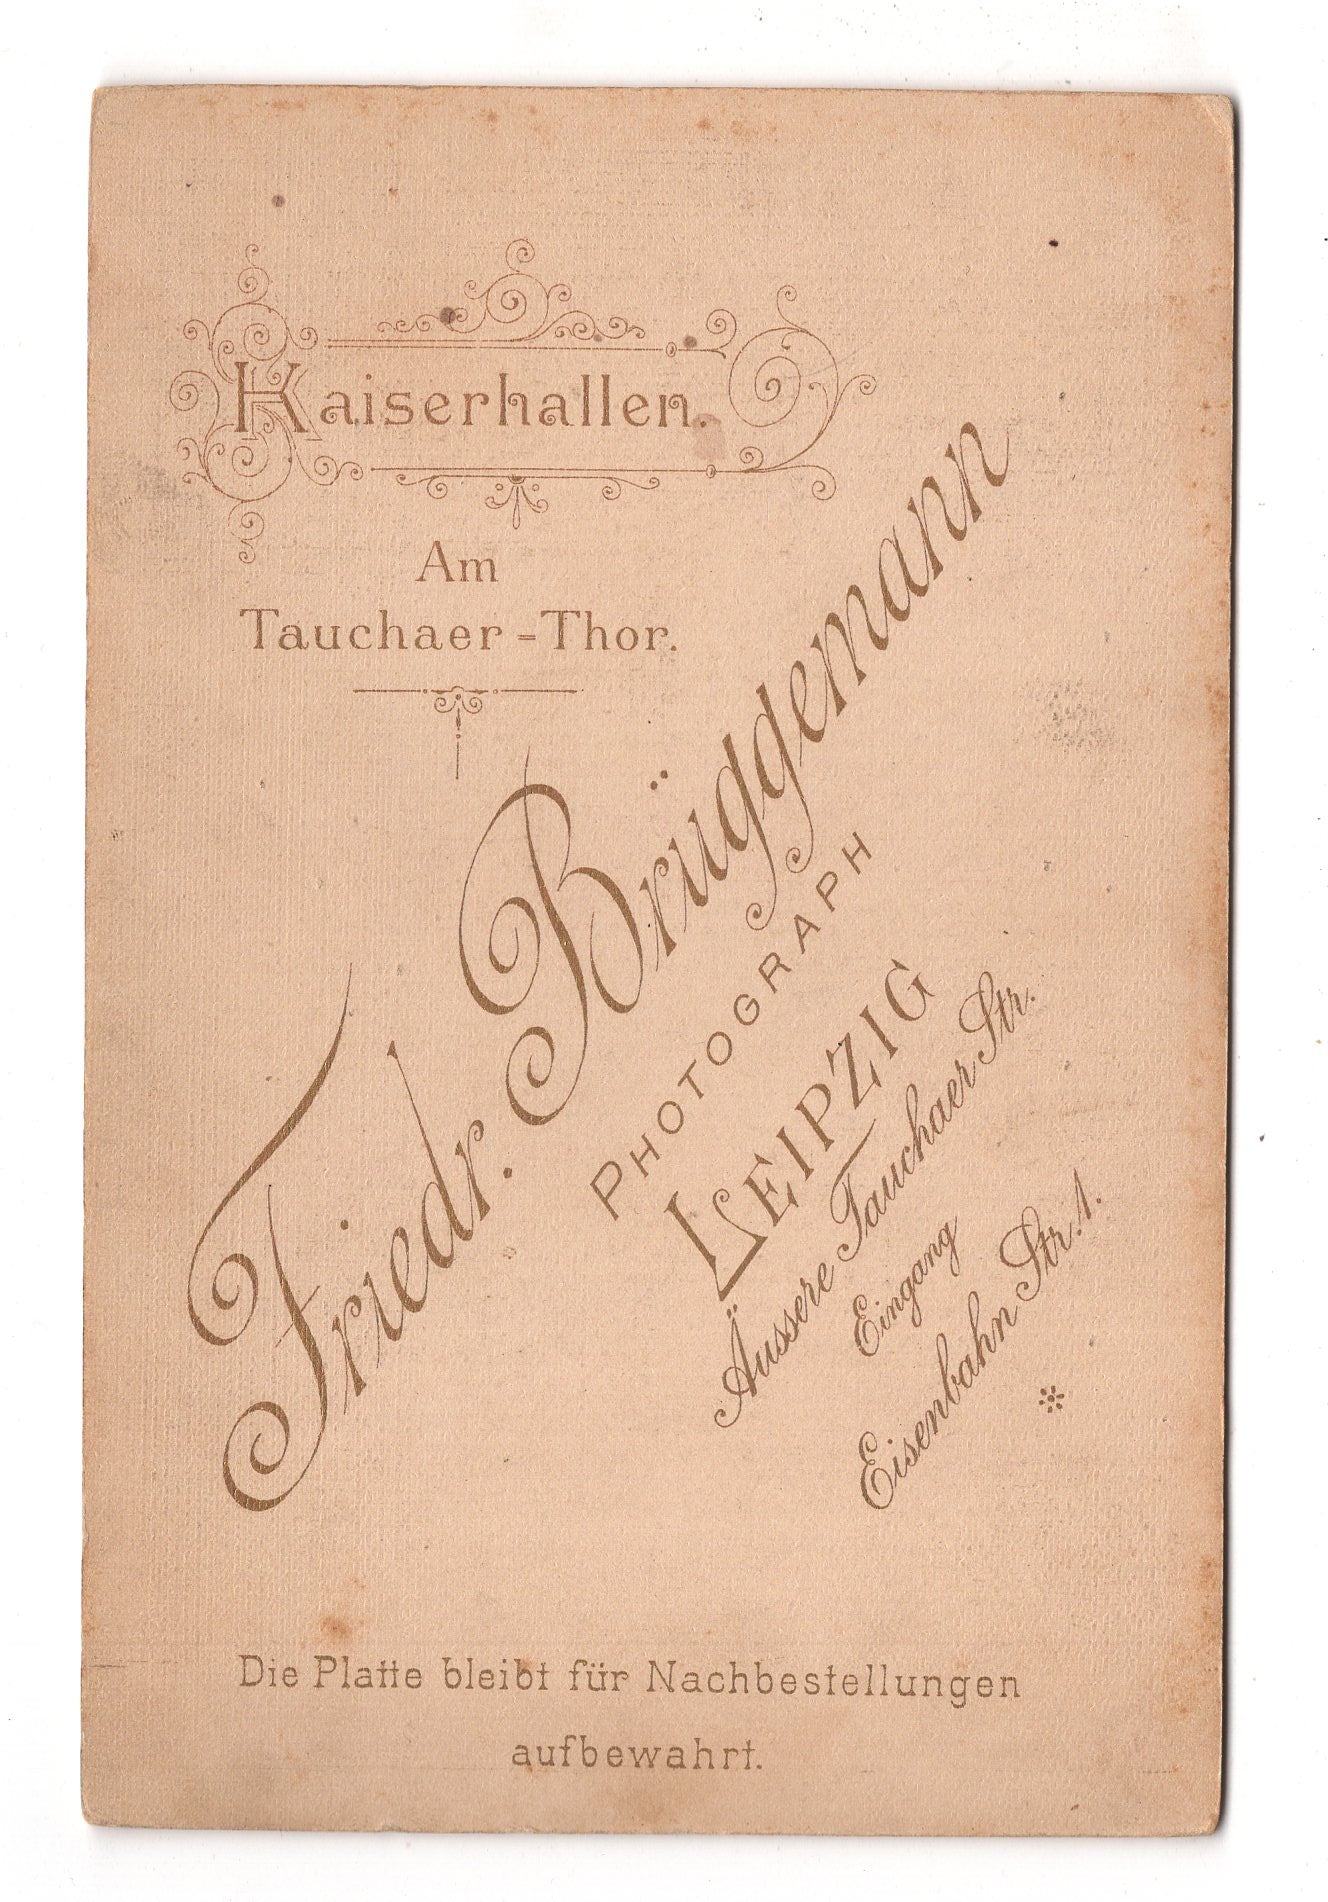 Kaiserhallen.
Am
Tauchaer-Thor.
Friedr. Brüggemann
PHOTOGRAPH
LEIPZIG
Äussere Tauchaer Str.
Eingang
Eisenbahn Str. 1.
Die Platte bleibt für Nachbestellungen
aufbewahrt.